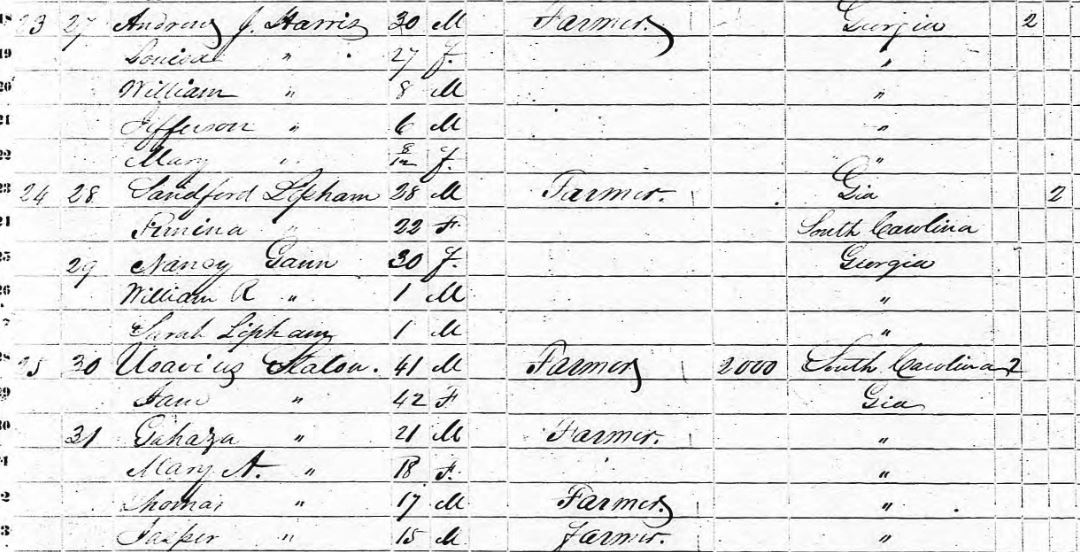 18 23 27 Andrew J. Harris 30 M Farmer. Georgia 2
19 Louisa " 27 F. "
20 William " 8 M "
21 Jefferson " 6 M "
22 Mary " 8/12 F. "
23 24 28 Sandford Lipham 28 M Farmer. Gia 2
24 " 22 F. South Carolina
25 29 Nancy Gann 30 F. Georgia
26 William R " 1 M "
7 Sarah Lipham 1 M "
28 25 30 41 M Farmer 2000 South Carolina 2
29 Jane " 42 F Gia
30 31 " 21 M Farmer. "
Mary A. " 18 F. "
2 Thomas " 17 M Farmer "
3 Jasper " 15 M Farmer. "